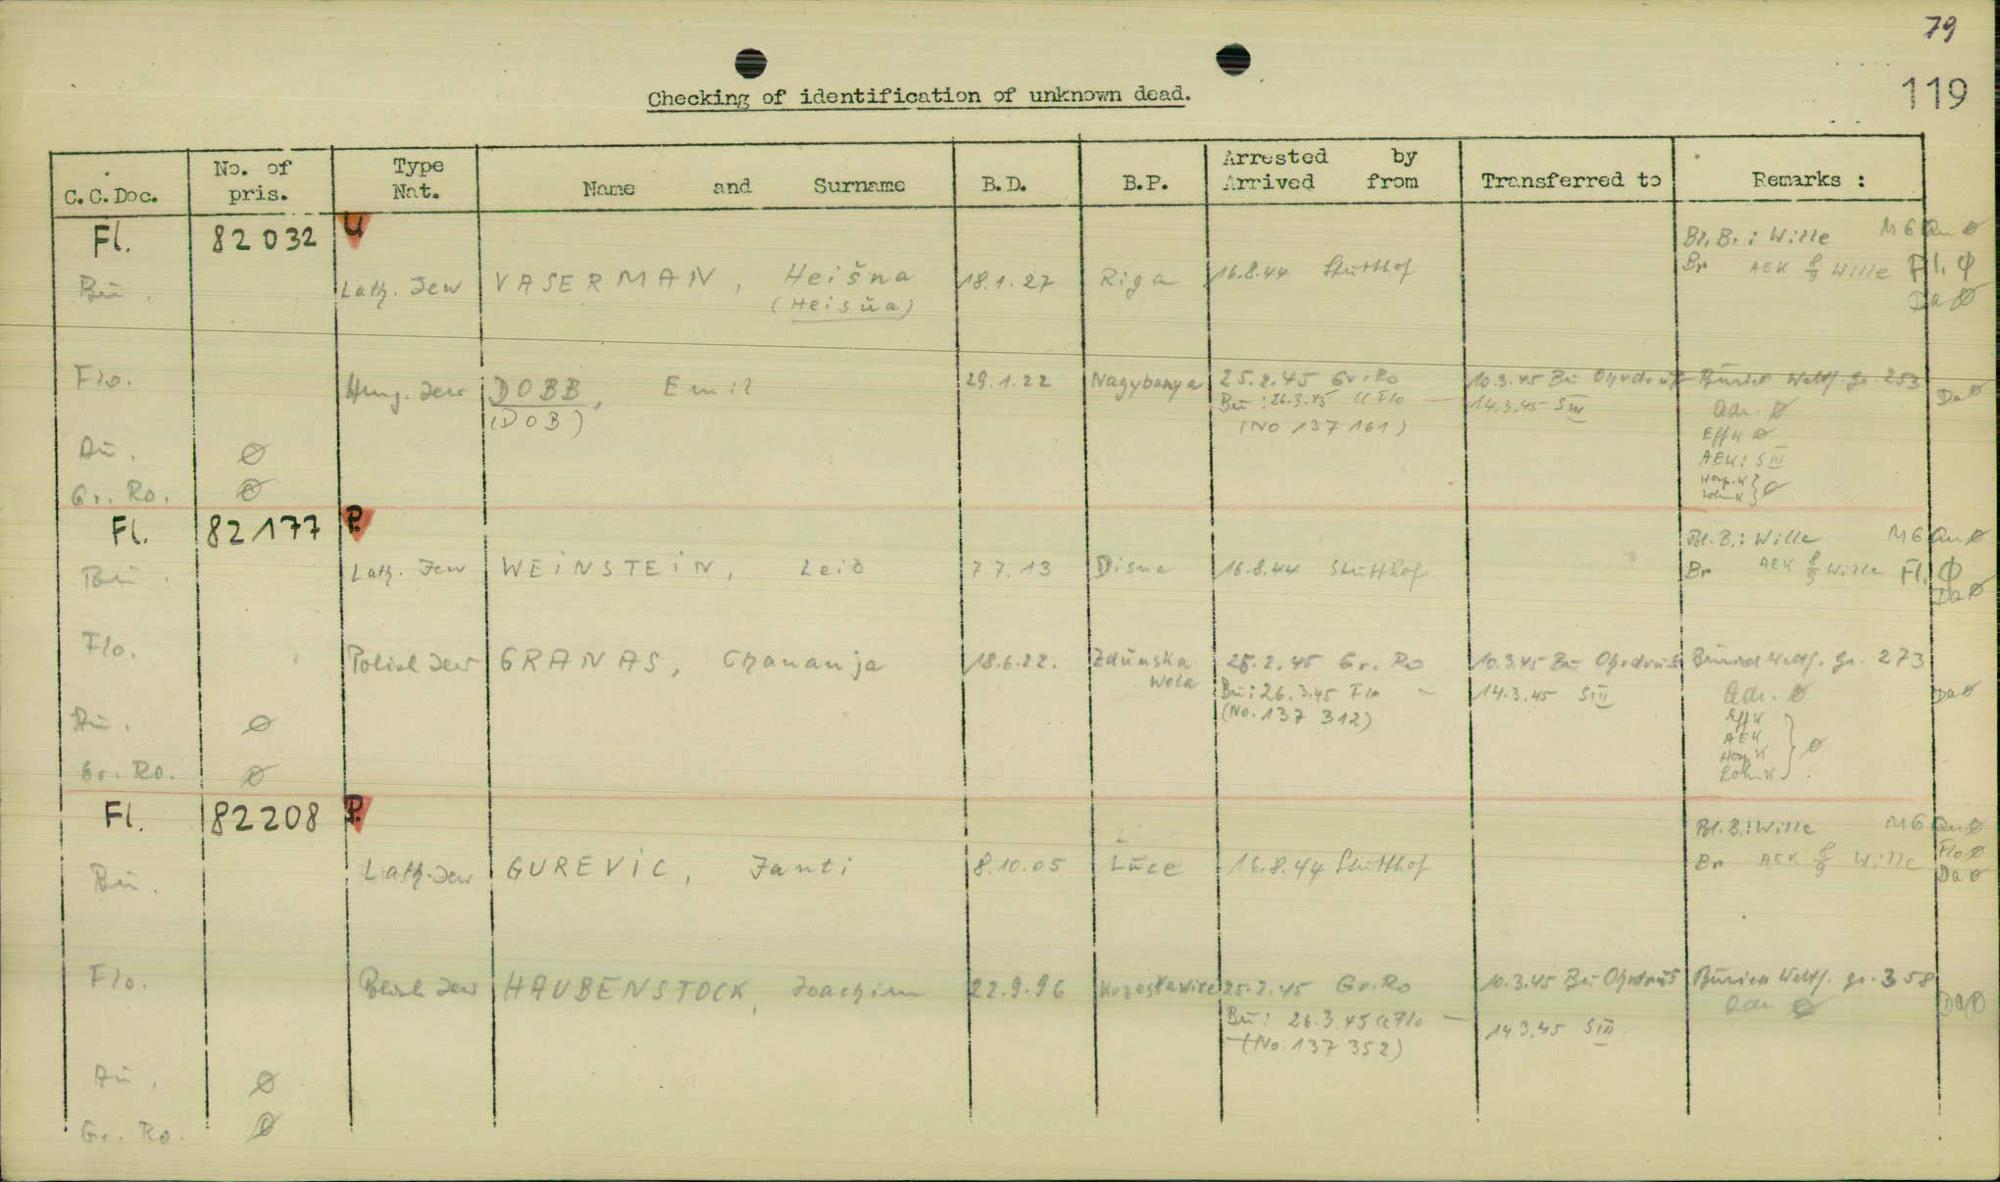 79
119
Checking of identification of unknown dead.
C.C.Doc. No. of pris. Type Nat. Name and Surname B.D. B.P. Arrested by Arrived from Transferred to Remarks :
Fl. 82032 U Bl.B.: Wille M6 Au ø
Bu. Lath. Jew VASERMAN, Heišna 18.1.27 Riga 16.8.44 Stutthof Br AEK Wille Fl. φ
(Heisùa) Da ø
Flo. Hung. Jew DOBB, Emil 29.1.22 Nagybanya 25.2.45 Gr.Ro 10.3.45 Bu Ohrdruf 253 Da ø
(DOB) Bu: 26.3.45 Flo — 14.3.45 SIII Adr. ø
(No 137161) EffK ø
Au. ø AEK: SIII
Gr. Ro. ø
Fl. 82177 P. Bl.B.: Wille M6 Au ø
Bu. Lath. Jew WEINSTEIN, Leib 7.7.13 Disna 16.8.44 Stutthof Br AEK Wille Fl. φ
Da ø
Flo. Polish Jew GRANAS, Chananja 18.6.22. Zdunska Wola 25.2.45 Gr. Ro 10.3.45 Bu Ohrdruf 273
Bu: 26.3.45 Flo — 14.3.45 SIII Adr. ø Da ø
(No. 137 312) EffK
Au. ø AEK ø
Gr. Ro. ø
Fl. 82208 P. Bl.B.: Wille M6 Au ø
Bu. Lath. Jew GUREVIC, Janti 8.10.05 Luce 16.8.44 Stutthof Br AEK Wille Flo ø
Da ø
Flo. Polish Jew HAUBENSTOCK, Joachim 22.9.96 25.2.45 Gr.Ro 10.3.45 Bu Ohrdruf 358
Bu: 26.3.45 Flo — 14.3.45 SIII Adr. ø Da ø
(No. 137 352)
Au. ø
Gr. Ro. ø